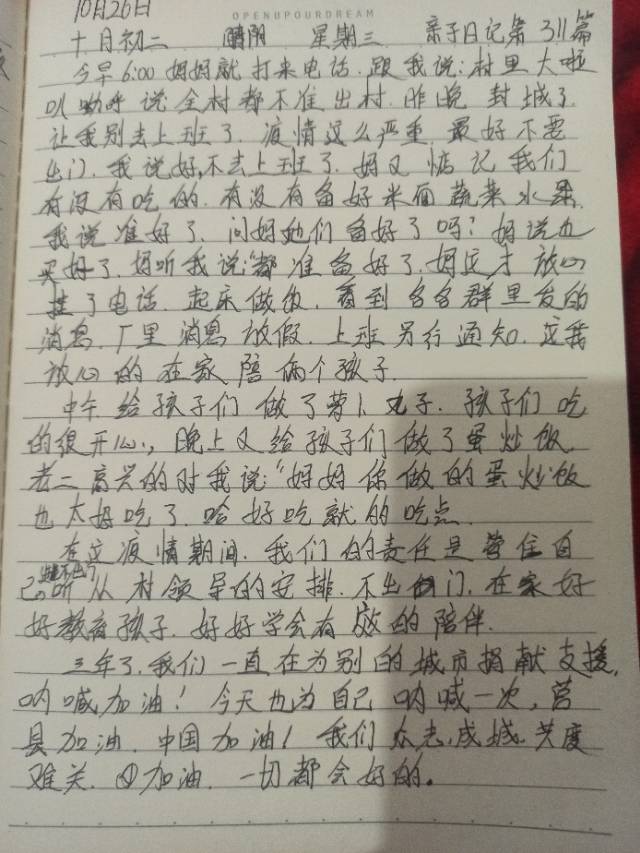 OPENUPOURDREAM
10月26日
十月初二 晴阴 星期三 亲子日记第311篇
今早6:00妈妈就打来电话.跟我说:村里大啦
叭呦呼说全村都不准出村.昨晚封城了
让我别去上班了.疫情这么严重.最好不要
出门.我说好,不去上班了.妈又惦记我们
有没有吃的.有没有备好米面蔬菜水果.
我说准好了.问妈她们备好了吗?妈说也
买好了.妈听我说:"都准备好了.妈这才放心
挂了电话.起床做饭.看到各各群里发的
消息.厂里消息放假.上班另行通知.这我
放心的在家陪俩个孩子.
中午给孩子们做了萝卜丸子.孩子们吃
的很开心.,晚上又给孩子们做了蛋炒饭.
老二高兴的对我说:"妈妈你做的蛋炒饭
也太好吃了.哈好吃就的吃点.
在这疫情期间.我们的责任是管住自
己.听从村领导的安排.不出门.在家好
好教育孩子.好好学会有效的陪伴.
三年了.我们一直在为别的城市捐献支援,
呐喊加油!今天也为自己呐喊一次,莒
县加油.中国加油!我们众志成城.共度
难关.加油.一切都会好的。